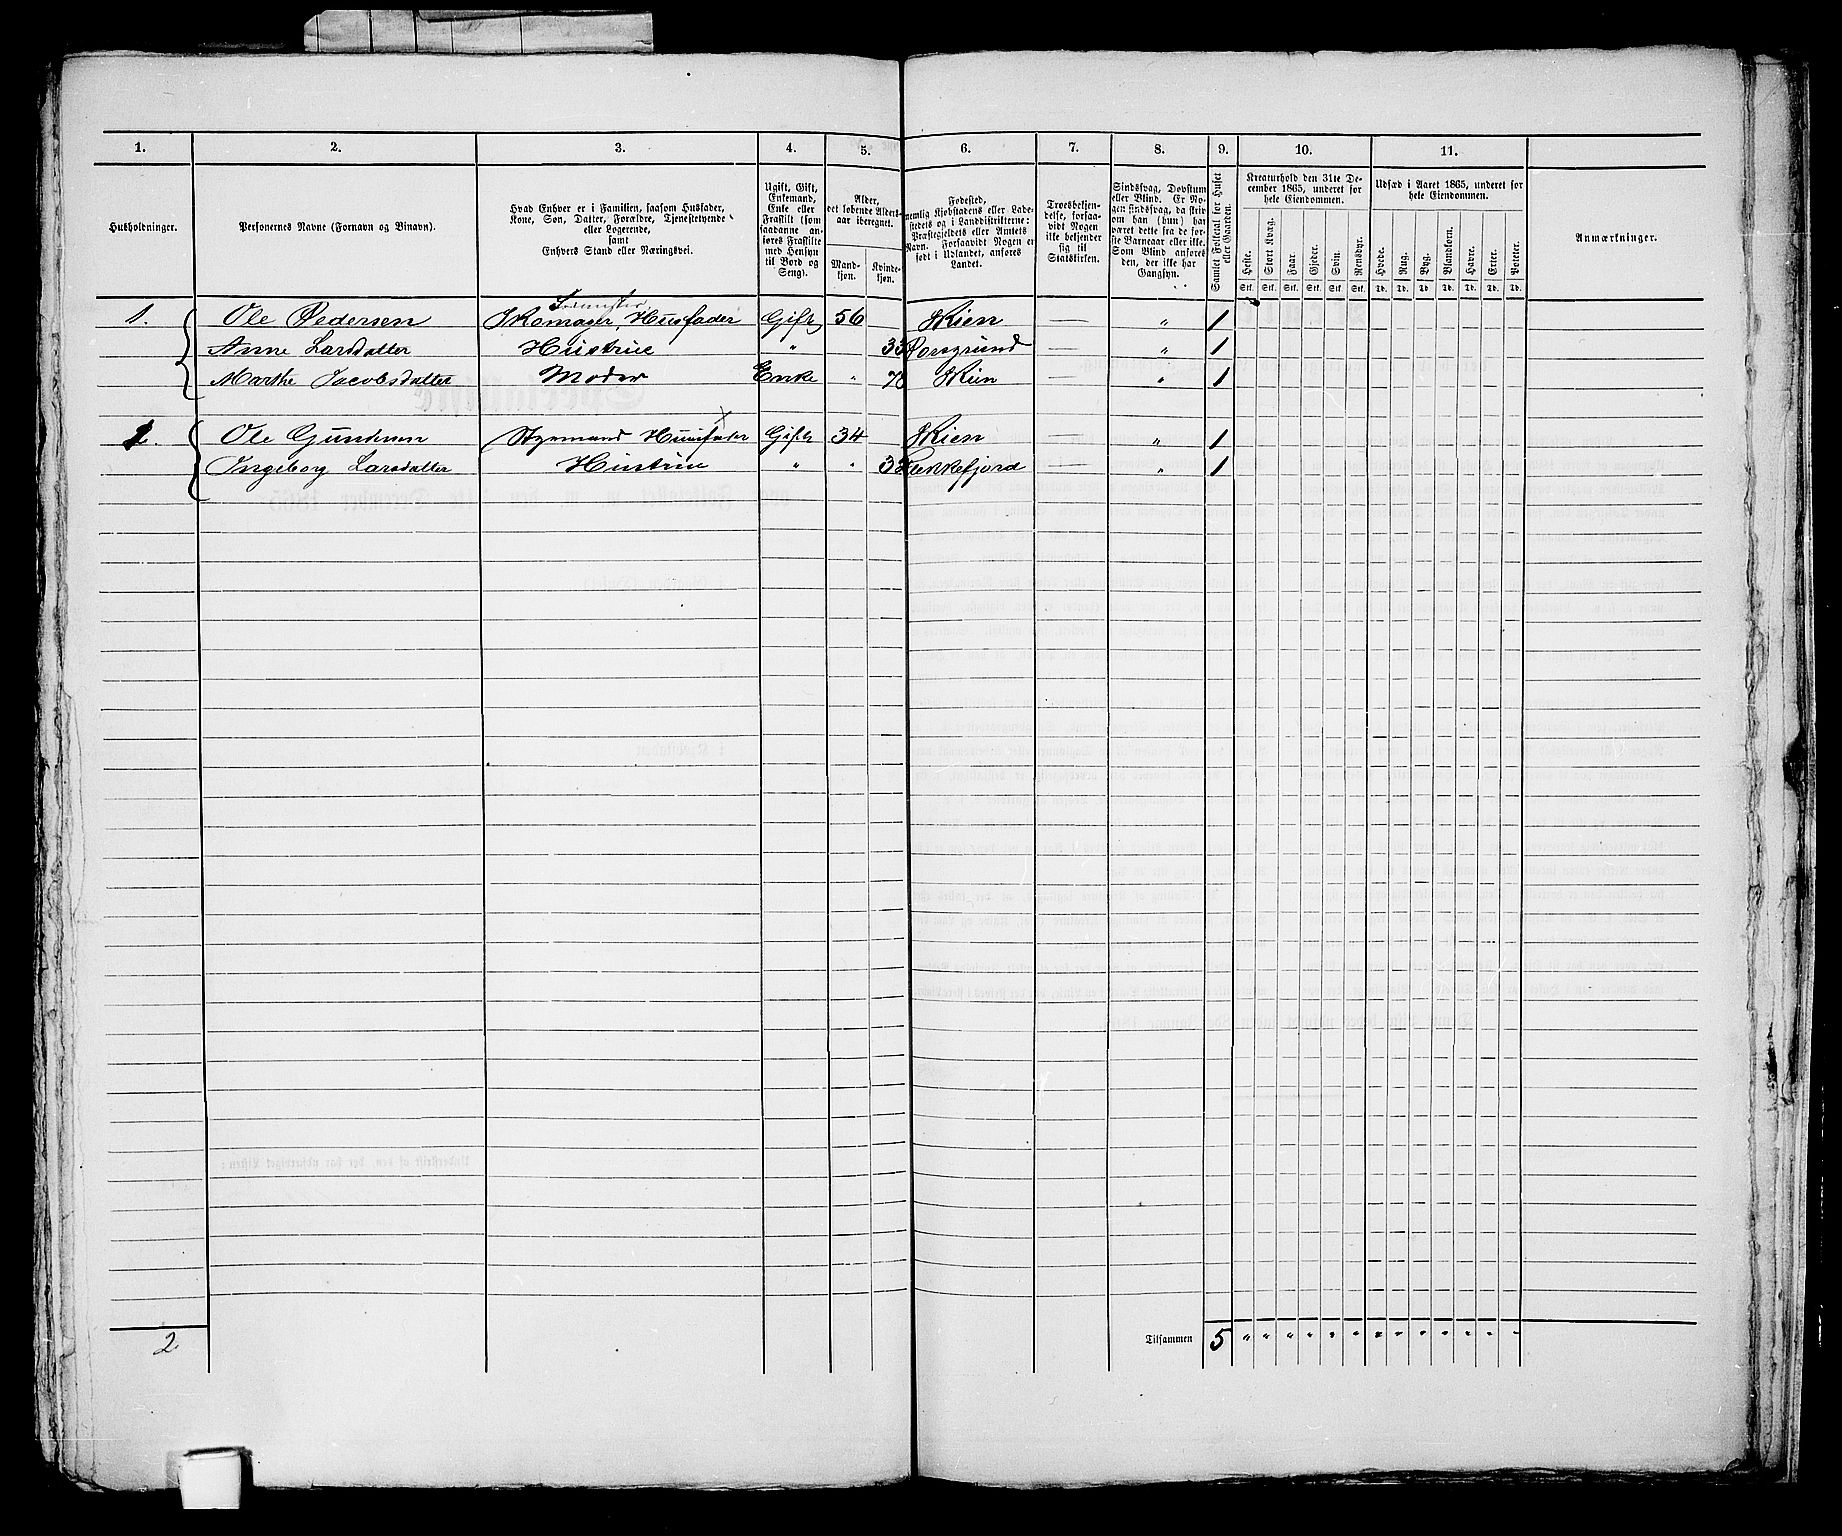 1. 2. 3. 4. 5. 6. 7. 8. 9. 10. 11.
Husholdninger.
Personernes Navne (Fornavn og Binavn).
Hvad Enhver er i Familien, saasom Husfader,
Kone, Søn, Datter, Forældre, Tjenestetyende
eller Logerende,
samt
Enhvers Stand eller Næringsvei.
Ugift, Gift,
Enkemand,
Enke eller
Fraskilt (som
saadanne an-
føres Fraskilte
med Hensyn
til Bord og
Seng).
Alder,
det løbende Alders-
aar iberegnet.
Mand-
kjøn.
Kvinde-
kjøn.
Fødested,
nemlig Kjøbstadens eller Lade-
stedets og i Landdistrikterne:
Præstegjeldets eller Amtets
Navn. Forsaavidt Nogen er
født i Udlandet, anføres
Landet.
Troesbekjen-
delse, forsaa-
vidt Nogen
ikke bekjender
sig til
Statskirken.
Sindssvag, Døvstum
eller Blind. Er No-
gen sindssvag, da skriv
om han (hun) har
været dette fra de før-
ste Barneaar eller ikke.
Som Blind anføres
den, der ikke har
Gangsyn.
Samlet Folketal for Huset
eller Gaarden.
Kreaturhold den 31te De-
cember 1865, underet for
hele Eiendommen.
Heste. Stort Kvæg. Faar. Gjeder. Svin. Rensdyr.
Stk. Stk. Stk. Stk. Stk. Stk.
Udsæd i Aaret 1865, underet for
hele Eiendommen.
Hvede. Rug. Byg. Blandkorn. Havre. Erter. Poteter.
Td. Td. Td. Td. Td. Td. Td.
Anmærkninger.
1. Ole Pedersen Skomager, Husfader Gift 56 Skien — " 1
Anne Larsdatter Hustrue " 33 Porsgrund — " 1
Marthe Jacobsdatter Moder Enke " Skien — " 1
2. Ole Gundersen Styrmand Huusfader Gift 34 Skien — " 1
Ingeborg Larsdatter Hustrue " " — " 1
2 Tilsammen 5 " " " " " " " " " " " " "